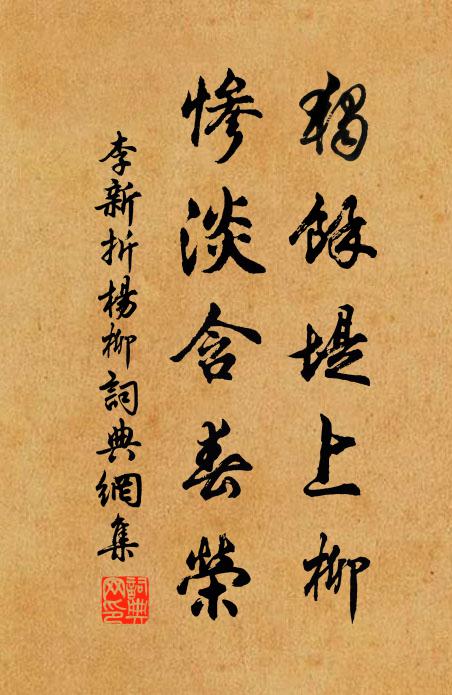 獨餘堤上柳
慘淡含春榮
李新折楊柳詞典網集
詞典网印